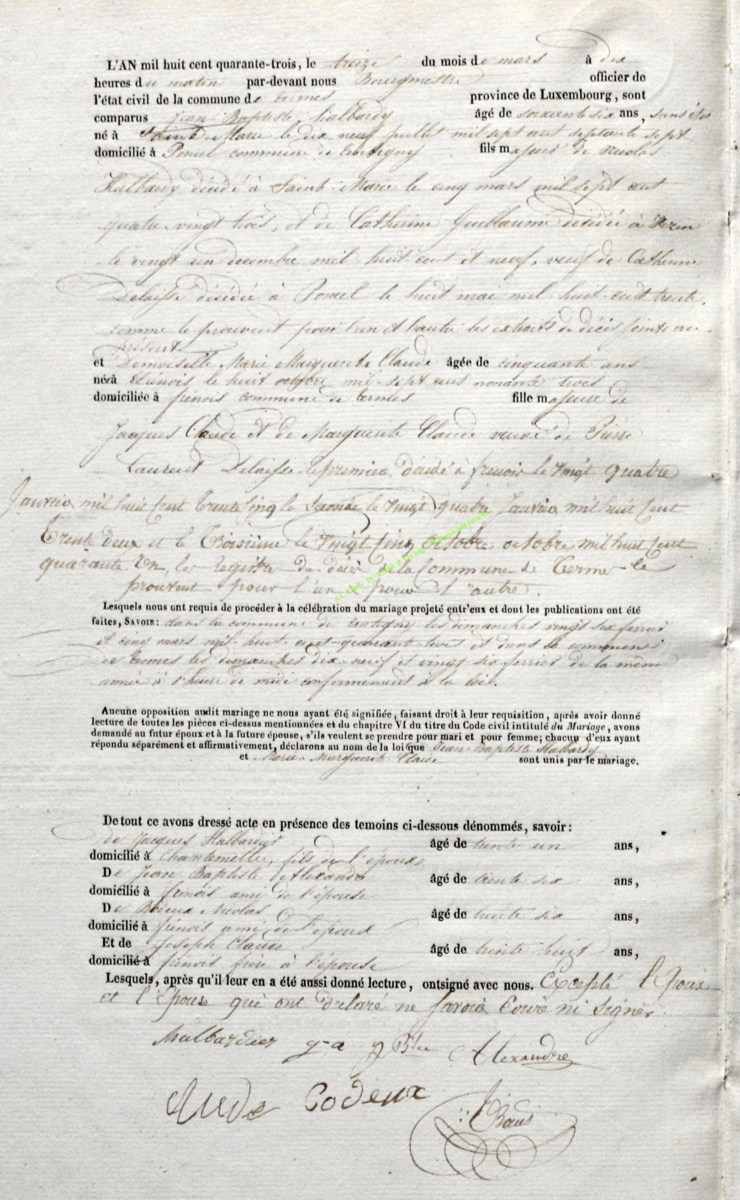 L'AN mil huit cent quarante-trois, le treize du mois de mars à dix
heures du matin par-devant nous Bourgmestre officier de
l'état civil de la commune de termes province de Luxembourg, sont
comparus Jean Baptiste halbardy âgé de soixante six ans, sans état
né à Sainte-Marie le dix neuf juillet mil sept cent septante sept
domicilié à Poncel commune de tintigny fils majeur de nicolas
Halbardy décédé à Sainte-Marie le cinq mars mil sept cent
quatre vingt trois, et de Catherine Guillaume décédée à
le vingt un decembre mil huit cent et neuf, veuf de Catherine
Delaisse décédée à Poncel le huit mai mil huit cent trente,
comme le prouvent pour l'un et l'autre les extraits de décès joints au
présent
et Demoiselle Marie Marguerite Claude âgée de cinquante ans
né à le huit octobre mil sept cent nonante trois
domiciliée à frenois commune de termes fille majeure de
Jacques Claude et de Marguerite Claude veuve de Pierre
Laurent Delaisse le premier décédé à frenoir le vingt quatre
Janvier mil huit Cent trente Cinq le Seconde le vingt quatre Janvier mil huit Cent
trente deux et le troisième le vingt Cinq octobre octobre mil huit Cent
quarante Un, les registre de décès de la Commune de terme le
prouvent pour l'un pour l'autre.
Lesquels nous ont requis de procéder à la célébration du mariage projeté entr'eux et dont les publications ont été
faites, SAVOIR: dans la commune de tintigny les dimanches vingt six ferrier
et cinq mars mil huit cent quarante trois et dans la commune
de termes les dimanches dix-neuf et vingt six ferrier de la même
année à l'heure de midi conformement à la loi.
Aucune opposition audit mariage ne nous ayant été signifiée, faisant droit à leur requisition, après avoir donné
lecture de toutes les pièces ci-dessus mentionnées et du chapitre VI du titre du Code civil intitulé du Mariage, avons
demandé au futur époux et à la future épouse, s'ils veulent se prendre pour mari et pour femme; chacun d'eux ayant
répondu séparément et affirmativement, déclarons au nom de la loi que Jean Baptiste Halbardy
et Marie Marguerite Claude sont unis par le mariage.
De tout ce avons dressé acte en présence des temoins ci-dessous dénommés, savoir:
de Jacques Halbardy âgé de trente un ans,
domicilié à Chantemelle, fils de l'époux
De Jean Baptiste Alexandre âgé de trente six ans,
domicilié à frenois ami de l'épouse
De Nicolas âgé de trente six ans,
domicilié à frenois ami de l'époux
Et de Joseph Claude âgé de trente huit ans,
domicilié à frenois frère à l'épouse
Lesquels, après qu'il leur en a été aussi donné lecture, ont signé avec nous. Excepté l'Epoux
et l'Epouse qui ont declaré ne Savoir Ecrire ni Signer.
halbardier Alexandre